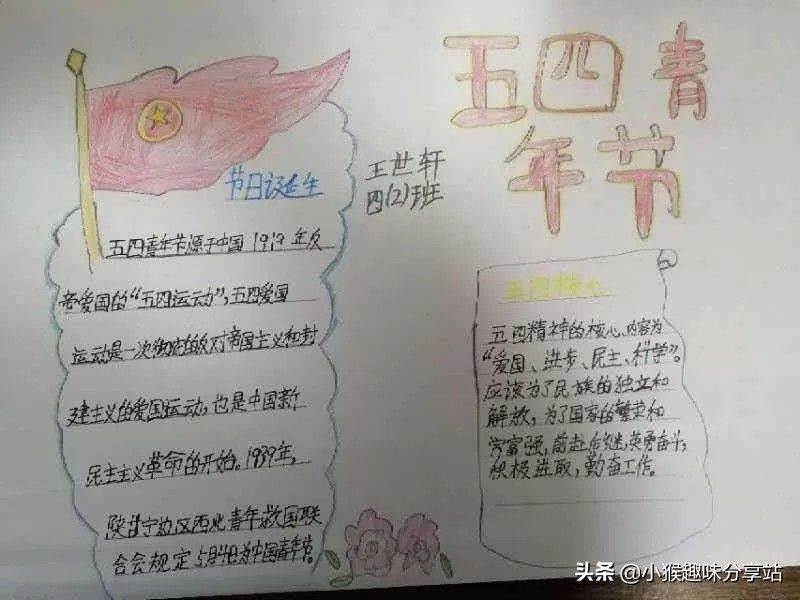 五四青
年节
王世轩
四(2)班
节日诞生
五四青年节源于中国1919年反
帝爱国的“五四运动”,五四爱国
运动是一次彻底的反对帝国主义和封
建主义的爱国运动,也是中国新
民主主义革命的开始。1939年,
陕甘宁边区西北青年救国联
合会规定5月4日为中国青年节。
五四核心
五四精神的核心内容为
“爱国、进步、民主、科学”。
应该为了民族的独立和
解放,为了国家的繁荣和
富强,前赴后继,英勇奋斗,
积极进取,勤奋工作。
头条 @小猴趣味分享站